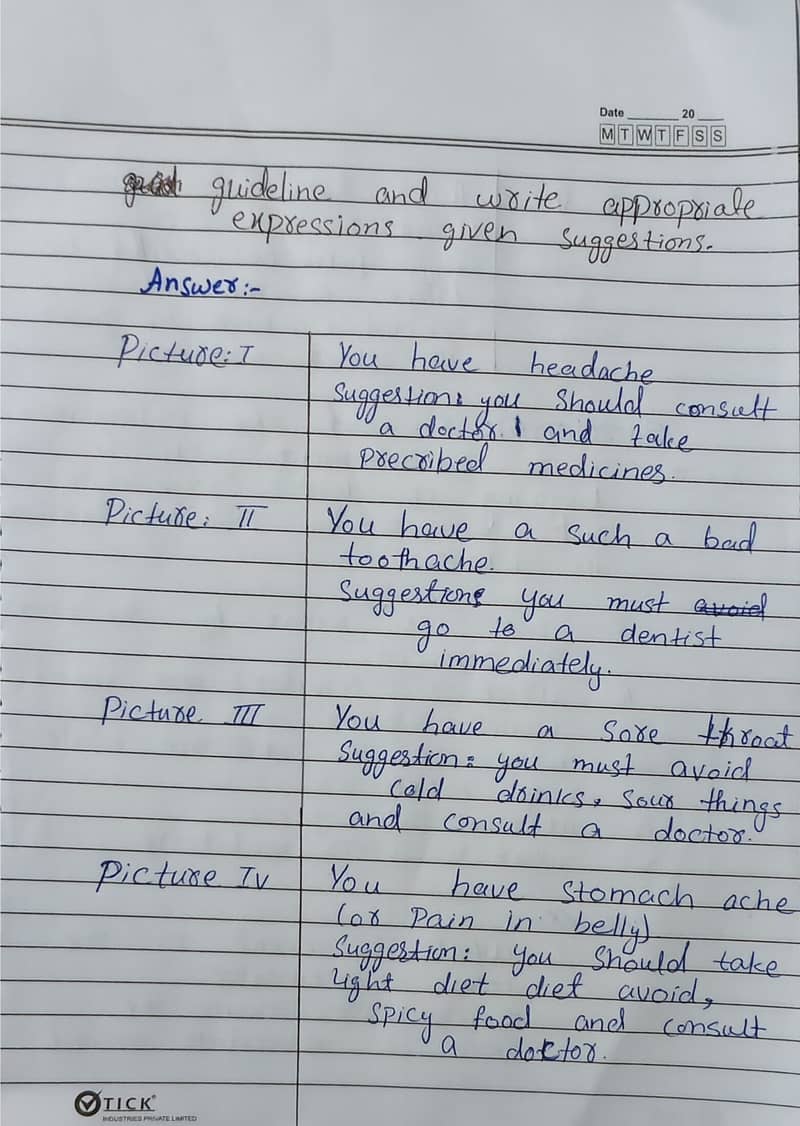 Date ______ 20 ___
M T W T F S S
guideline and write appropriate
expressions given suggestions.
Answer:-
Picture: I You have headache
Suggestion: you should consult
a doctor. and take
precribed medicines.
Picture: II You have a such a bad
toothache.
Suggestion: you must avoid
go to a dentist
immediately.
Picture III You have a sore throat
Suggestion: you must avoid
cold drinks, sour things
and consult a doctor.
Picture IV You have stomach ache
(or Pain in belly)
Suggestion: you should take
light diet diet avoid,
spicy food and consult
a doctor.
TICK
INDUSTRIES PRIVATE LIMITED